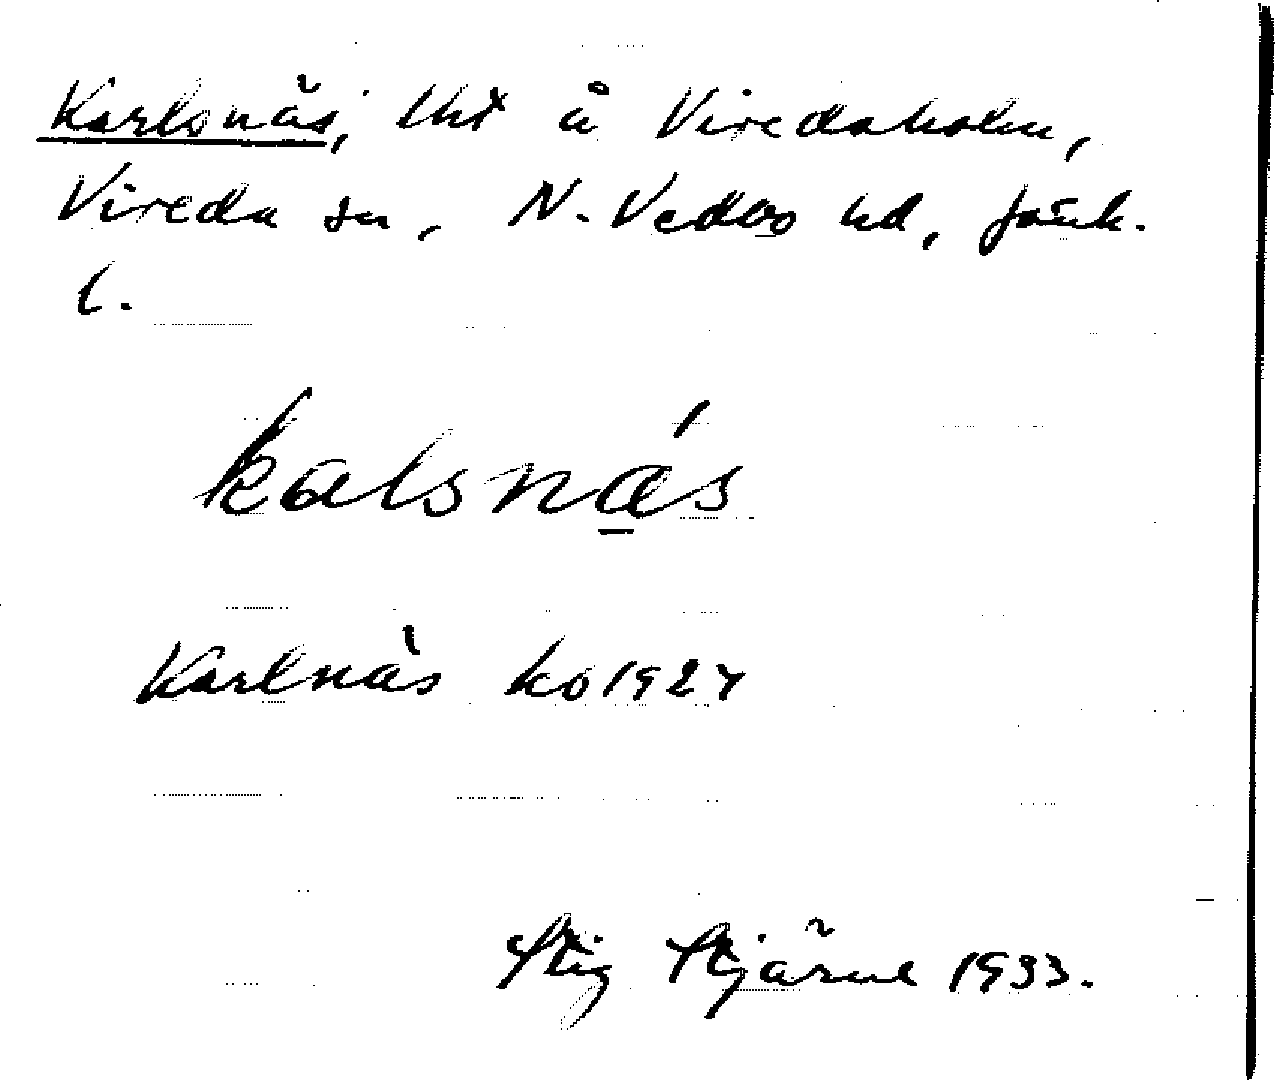 Karlsnäs, tht å Viredaholm,
Vireda sn, N. Vedbo hd, Jönk.
l.
kalsnás
Karlnäs ko 1927
Stig Stjärne 1933.